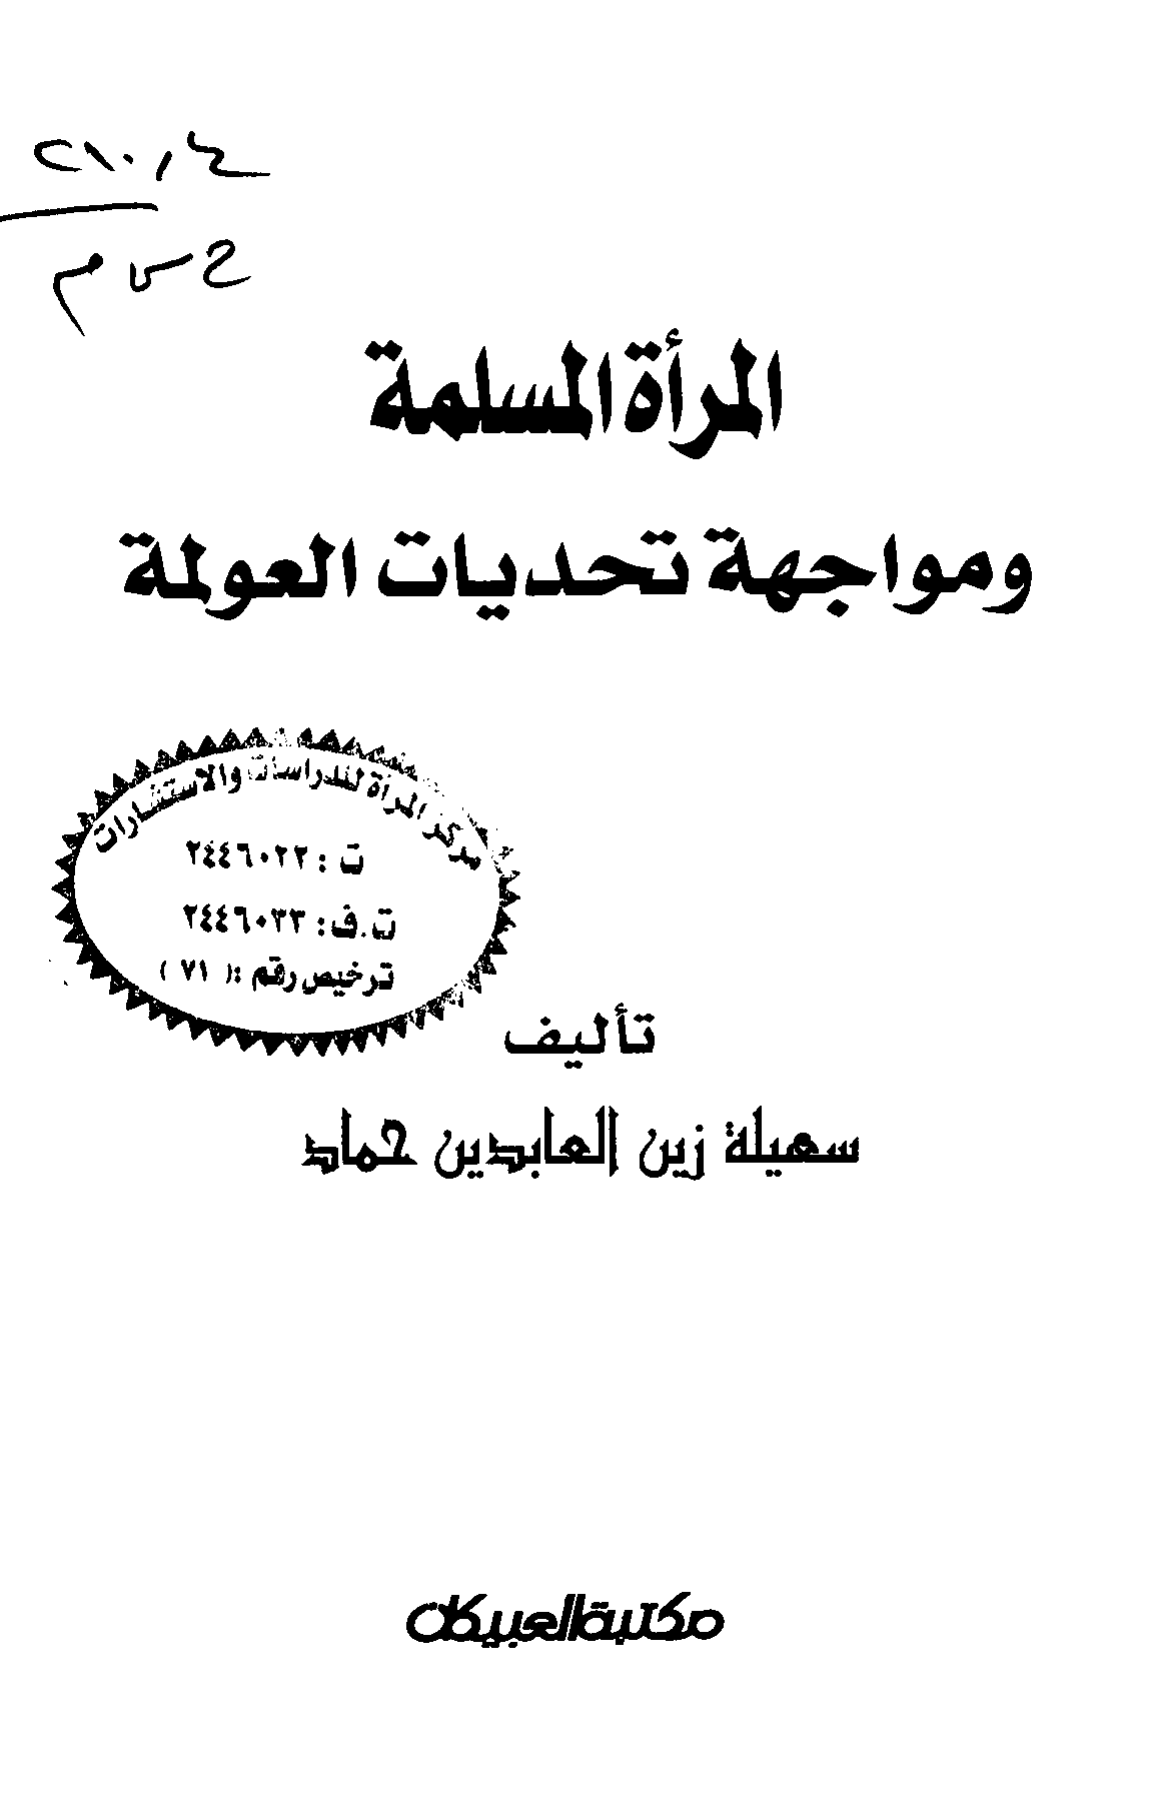 ٢١٠,٤
ح س م
المرأة المسلمة
ومواجهة تحديات العولمة
مركز المرأة للدراسات والاستشارات
ت : ٢٤٤٦٠٢٢
ت.ف: ٢٤٤٦٠٣٣
ترخيص رقم :( ٧١ )
تأليف
سهيلة زين العابدين حماد
مكتبة العبيكان